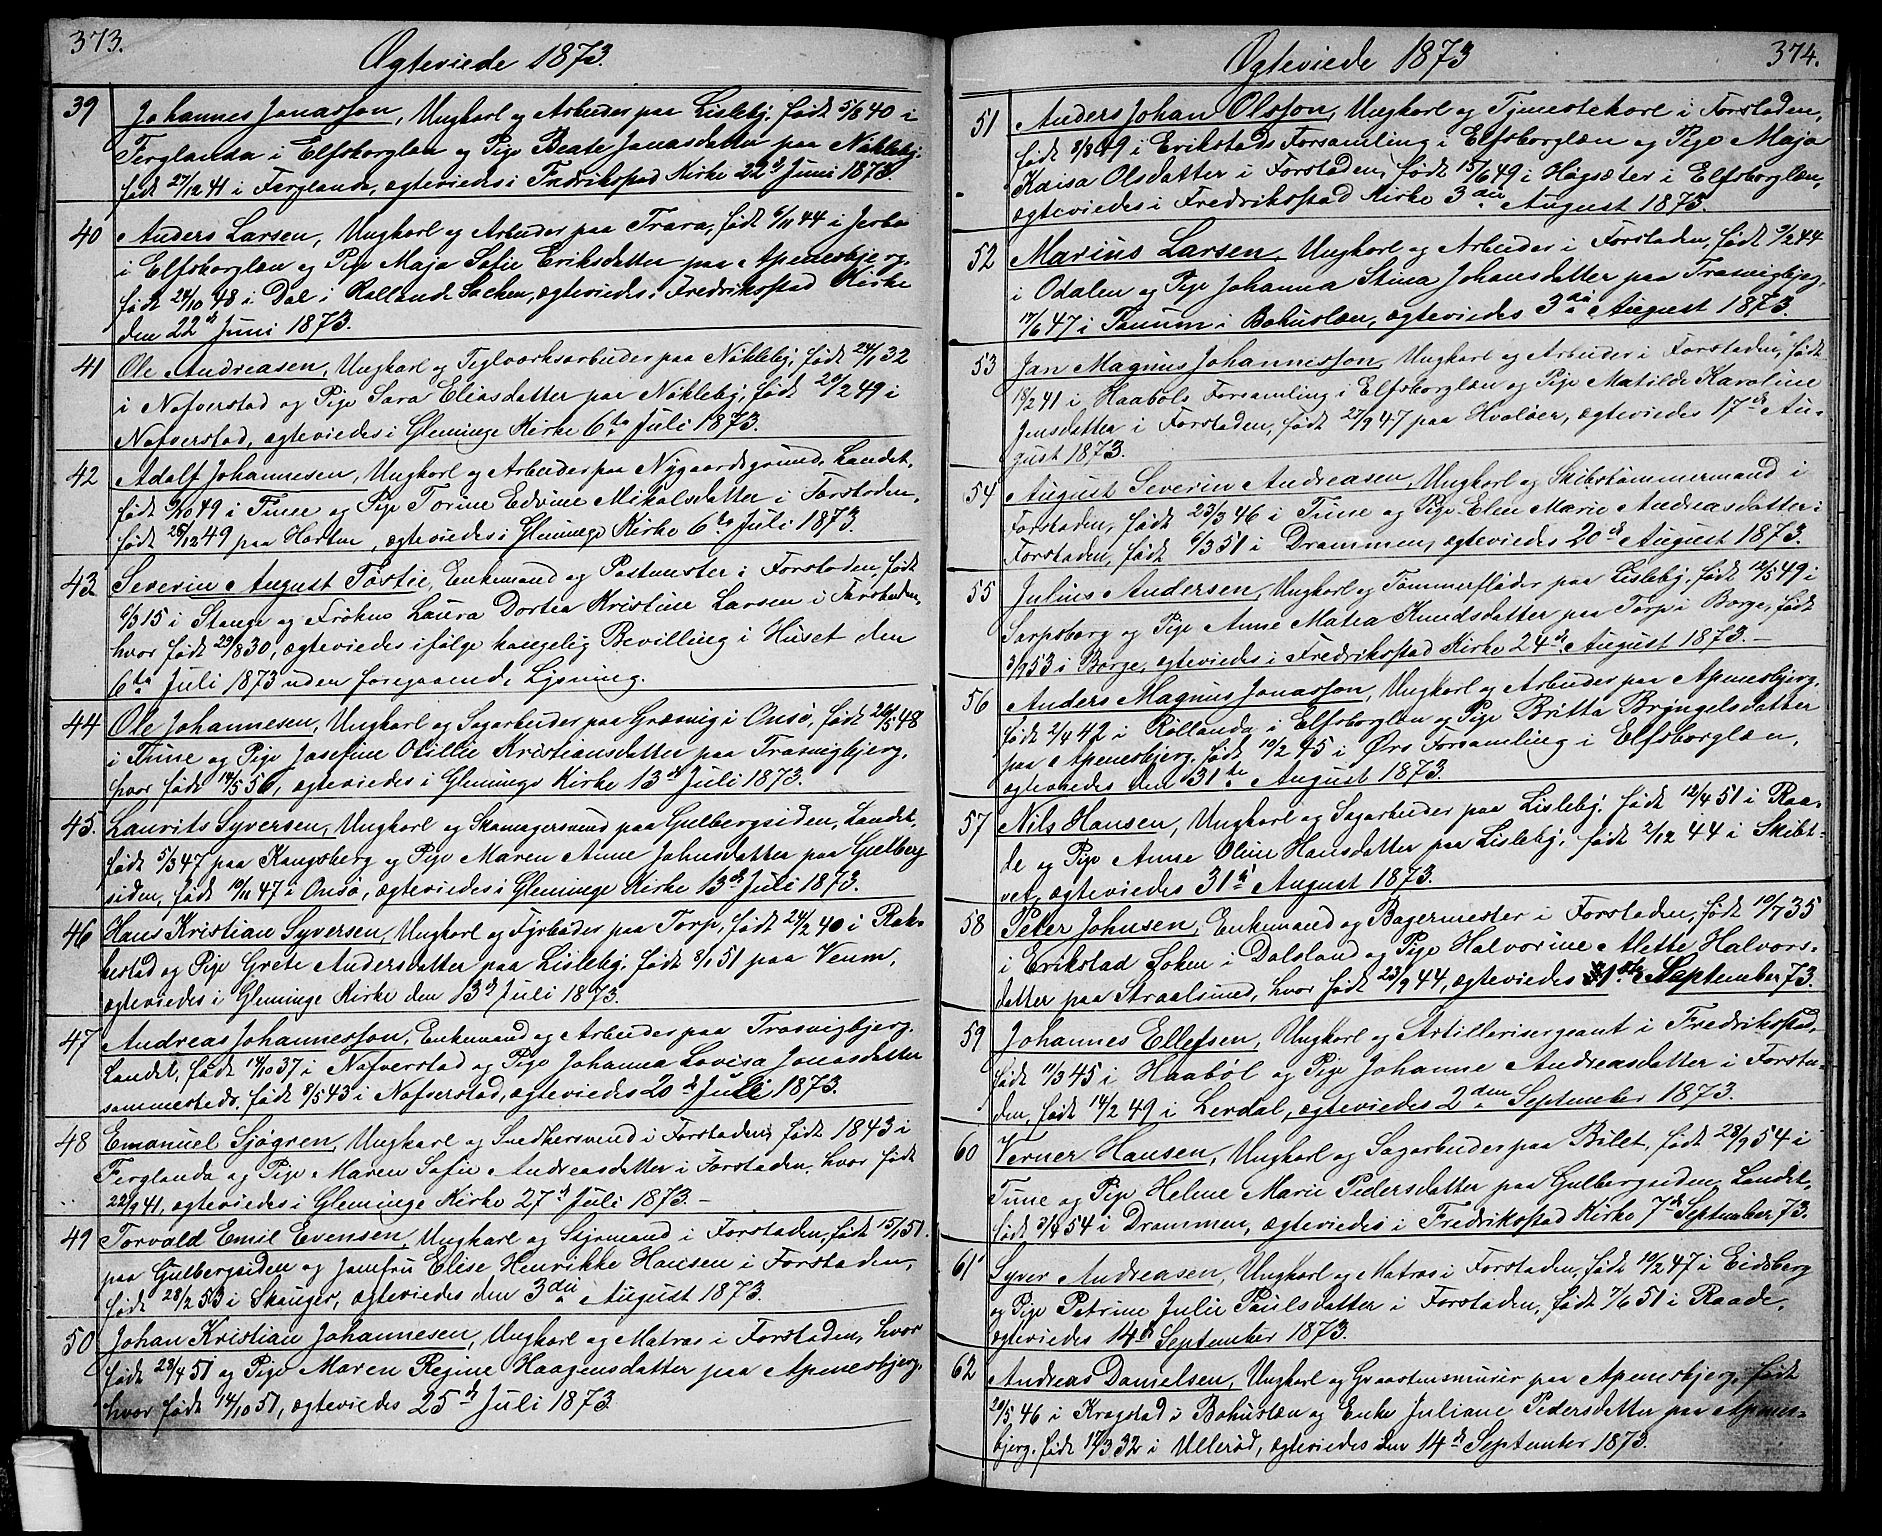 373.
Ogteviede 1873.
39 Johannes Jonasson, Ungkarl og Arbeider paa Lisleby, født 5/8 40 i
Ferglanda i Elfsborglæn og Pige Beate Jonasdatter paa Nökleby,
født 27/12 41 i Ferglanda, ægteviedes i Fredrikstad Kirke 22d Juni 1873.
40 Anders Larsen, Ungkarl og Arbeider paa Trara, født 6/11 44 i Jerbo
i Elfsborglæn og Pige Maja Sofie Eriksdatter paa Apenesbjerg,
født 24/10 48 i Dal i Rolland Socken, ægteviedes i Fredrikstad Kirke
den 22d Juni 1873.
41 Ole Andreasen, Ungkarl og Teglværksarbeider paa Nökleby, født 24/1 32
i Nafverstad og Pige Sara Eliasdatter paa Nökleby, født 20/2 49 i
Nafverstad, ægteviedes i Gleminge Kirke 6te Juli 1873.
42 Adolf Johannesen, Ungkarl og Arbeider paa Nygaardsgrund, Landet,
født 49 i Tune og Pige Torine Edvine Mikalsdatter i Forstaden,
født 26/12 49 paa Horten, ægteviedes i Gleminge Kirke 6te Juli 1873.
43 Severin August Tostie, Enkemand og Postmester i Forstaden, født
6/3 15 i Stange og Frøken Laura Dortea Kristine Larsen i Forstaden,
hvor født 29/8 30, ægteviedes ifølge kongelig Bevilling i Huset den
6te Juli 1873 uden foregaaende Lysning.
44 Ole Johannesen, Ungkarl og Sagarbeider paa Græsvig i Onsö, født 26/5 48
i Tune og Pige Josefine Otillie Kristiansdatter paa Trosvigbjerg,
hvor født 14/5 50, ægteviedes i Gleminge Kirke 13de Juli 1873.
45. Laurits Syversen, Ungkarl og Skomagersvend paa Gulbergsiden, Landet,
født 5/3 47 paa Kongsberg og Pige Maren Anne Johnsdatter paa Gulberg
siden, født 10/11 47 i Onsö, ægteviedes i Gleminge Kirke 13de Juli 1873.
46 Hans Kristian Syversen, Ungkarl og Fyrbøder paa Torp, født 24/2 40 i Rak-
kestad og Pige Grete Andersdatter paa Lisleby, født 8/1 51 paa Veum,
ægteviedes i Gleminge Kirke den 13de Juli 1873.
47 Andreas Johannesson, Enkemand og Arbeider paa Trosvigbjerg,
Landet, født 14/10 37 i Nafverstad og Pige Johanna Lovisa Jonasdatter
sammesteds, født 8/5 43 i Nafverstad, ægteviedes 20d Juli 1873.
48 Emanuel Sjøgren, Ungkarl og Snedkersvend i Forstaden, født 1843 i
Ferglanda og Pige Maren Sofie Andreasdatter i Forstaden, hvor født
22/9 41, ægteviedes i Gleminge Kirke 27d Juli 1873. –
49 Torvald Emil Evensen, Ungkarl og Styrmand i Forstaden, født 15/1 51
paa Gulbergsiden og Jomfru Elise Henrikke Hansen i Forstaden,
født 28/2 53 i Skauger, ægteviedes den 3die August 1873.
50 Johan Kristian Johannesen, Ungkarl og Matros i Forstaden, hvor
født 28/4 51 og Pige Maren Regine Haagensdatter paa Apenesbjerg,
hvor født 14/10 51, ægteviedes 25d Juli 1873
374.
Ogteviede 1873
51 Anders Johan Olsson, Ungkarl og Tjenestekarl i Forstaden,
født 8/8 49 i Erikstads Forsamling i Elfsborglæn og Pige Maja
Kaisa Olsdatter i Forstaden, født 15/6 49 i Högsæter i Elfsborglæn,
ægteviedes i Fredrikstad Kirke 3die August 1873.
52 Marius Larsen, Ungkarl og Arbeider i Forstaden, født 9/2 44
i Odalen og Pige Johanna Stina Johansdatter paa Trosvigbjerg,
17/6 47 i Tanum i Bohuslæn, ægteviedes 3die August 1873.
53 Jan Magnus Johannesson, Ungkarl og Arbeider i Forstaden, født
18/2 41 i Haabøls Forsamling i Elfsborglæn og Pige Matilde Karoline
Jensdatter i Forstaden, født 27/9 47 paa Hvaløer, ægteviedes 17de Au-
gust 1873.
54 August Severin Andreasen, Ungkarl og Skibstømmermand i
Forstaden, født 23/3 46 i Tune og Pige Elen Marie Andreasdatter i
Forstaden, født 6/3 51 i Drammen, ægteviedes 20d August 1873.
55 Julius Andersen, Ungkarl og Tømmerfløder paa Lisleby, født 12/5 49 i
Sarpsborg og Pige Anne Matea Knudsdatter paa Torp i Borge, født
3/9 53 i Borge, ægteviedes i Fredrikstad Kirke 24de August 1873. –
56 Anders Magnus Jonasson, Ungkarl og Arbeider paa Apenesbjerg,
født 2/4 42 i Röllanda i Elfsborglæn og Pige Britta Bryngelsdatter
paa Apenesbjerg, født 10/2 45 i Ørs Forsamling i Elfsborglæn,
ægteviedes den 31te August 1873.
57 Nils Hansen, Ungkarl og Sagarbeider paa Lisleby, født 12/4 51 i Raa-
de og Pige Anne Oline Hansdatter paa Lisleby, født 2/12 44 i Skibt-
vet, ægteviedes 31te August 1873.
58 Peter Johnsen, Enkemand og Bagermester i Forstaden, født 10/7 35
i Erikstad Soken i Dalsland og Pige Halvorine Mette Halvors-
datter paa Straalsund, hvor født 23/9 44, ægteviedes 1ste September 73.
59 Johannes Ellefsen, Ungkarl og Artillerisergeant i Fredrikstad,
født 11/3 45 i Haaböl og Pige Johanne Andreasdatter i Forsta-
den, født 14/2 49 i Lerdal, ægteviedes 2den September 1873.
60 Verner Hansen, Ungkarl og Sagarbeider paa Bilet, født 28/9 54 i
Tune og Pige Helene Marie Pedersdatter paa Gulbergsiden, Landet,
født 3/4 54 i Drammen, ægteviedes i Fredrikstad Kirke 7de September 73.
61 Syver Andreasen, Ungkarl og Matros i Forstaden, født 10/2 47 i Eidsberg
og Pige Petrine Julie Paulsdatter i Forstaden, født 7/6 51 i Raade,
ægteviedes 14d September 1873.
62 Andreas Danielsen, Ungkarl og Graastensmurer paa Apenesbjerg, født
20/5 46 i Krogstad i Bohuslæn og Enke Juliane Pedersdatter paa Apenes-
bjerg, født 17/3 32 i Ullerød, ægteviedes den 14d September 1873.